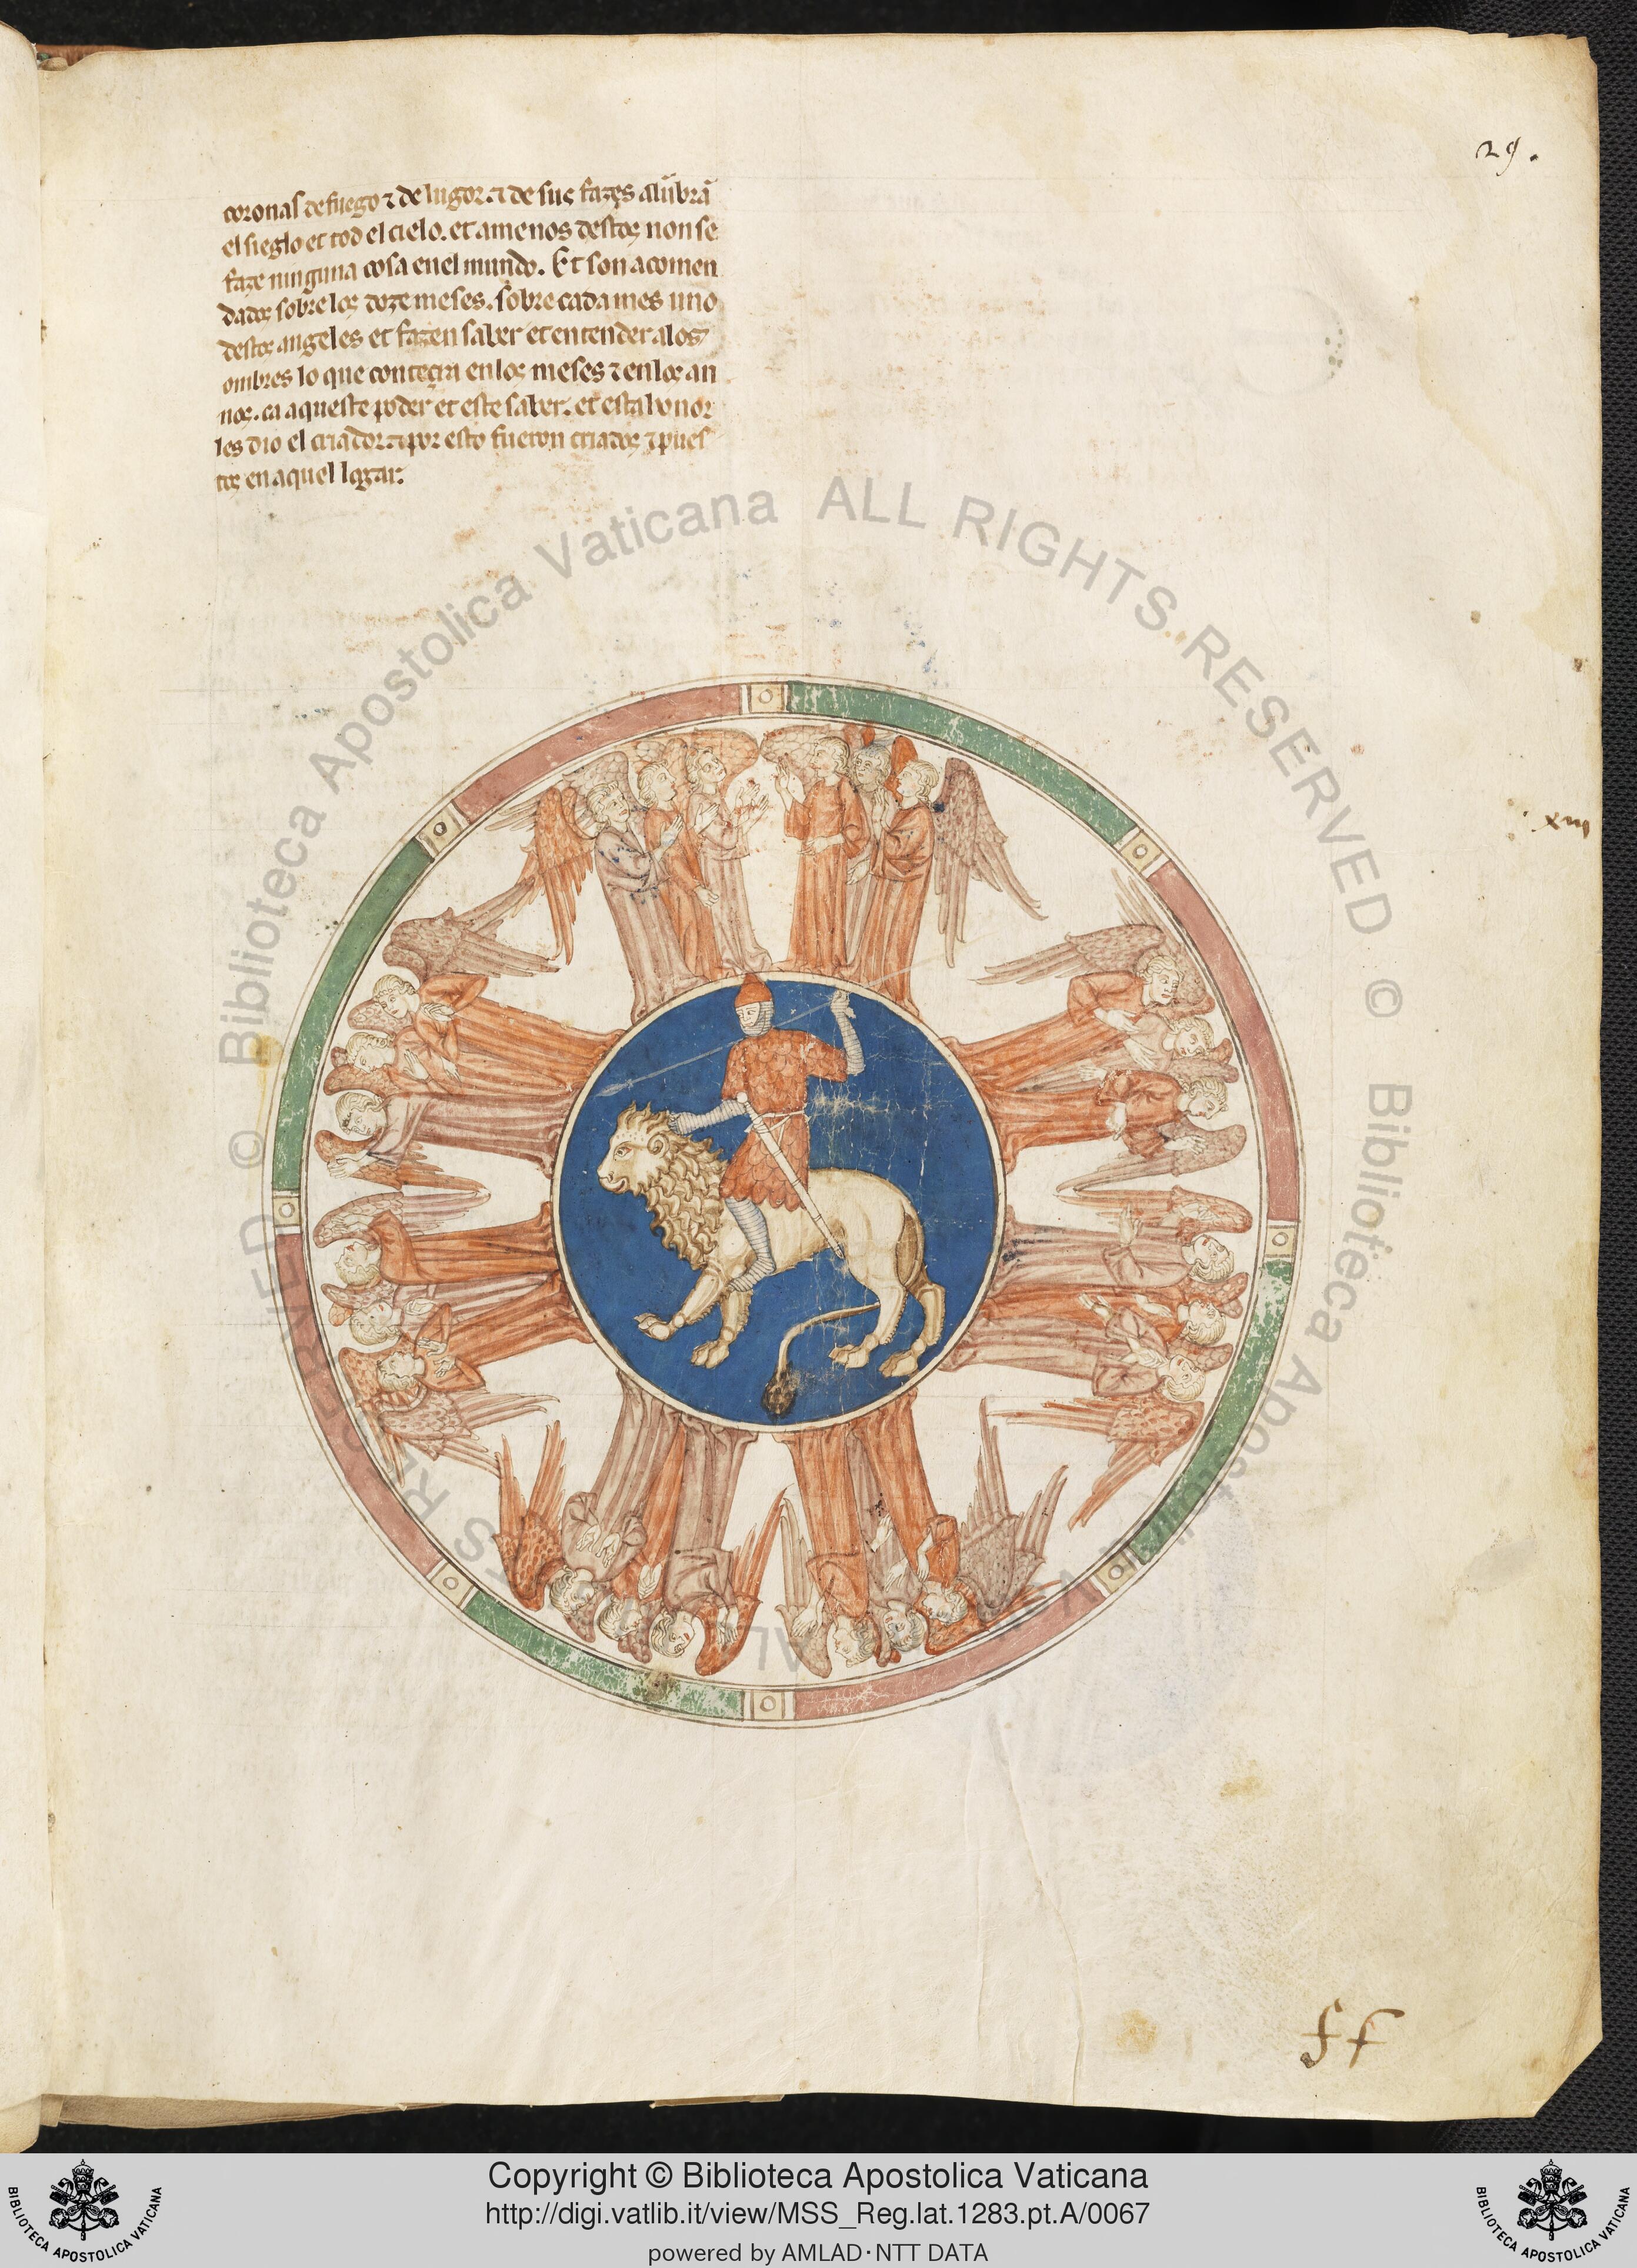 29.
coronas de fuego ⁊ de lugor. ⁊ de sus fazes alũbrã
el sieglo et tod el cielo. et amenos destos non se
faze ninguna cosa en el mundo. Et son acomen
dados sobre los doze meses. sobre cada mes uno
destos angeles et fazen saber et entender alos
ombres lo que conteçra en los meses ⁊ en los an
nos. ca aqueste poder et este saber. et esta honor
les dio el criador. ⁊ por esto fueron criados ⁊ pues
tos en aquel logar.
xiii
ff
© Biblioteca Apostolica Vaticana ALL RIGHTS RESERVED © Biblioteca Apostolica Vaticana ALL RIGHTS RESERVED
Copyright © Biblioteca Apostolica Vaticana
http://digi.vatlib.it/view/MSS_Reg.lat.1283.pt.A/0067
powered by AMLAD·NTT DATA
BIBLIOTECA APOSTOLICA VATICANA
BIBLIOTECA APOSTOLICA VATICANA